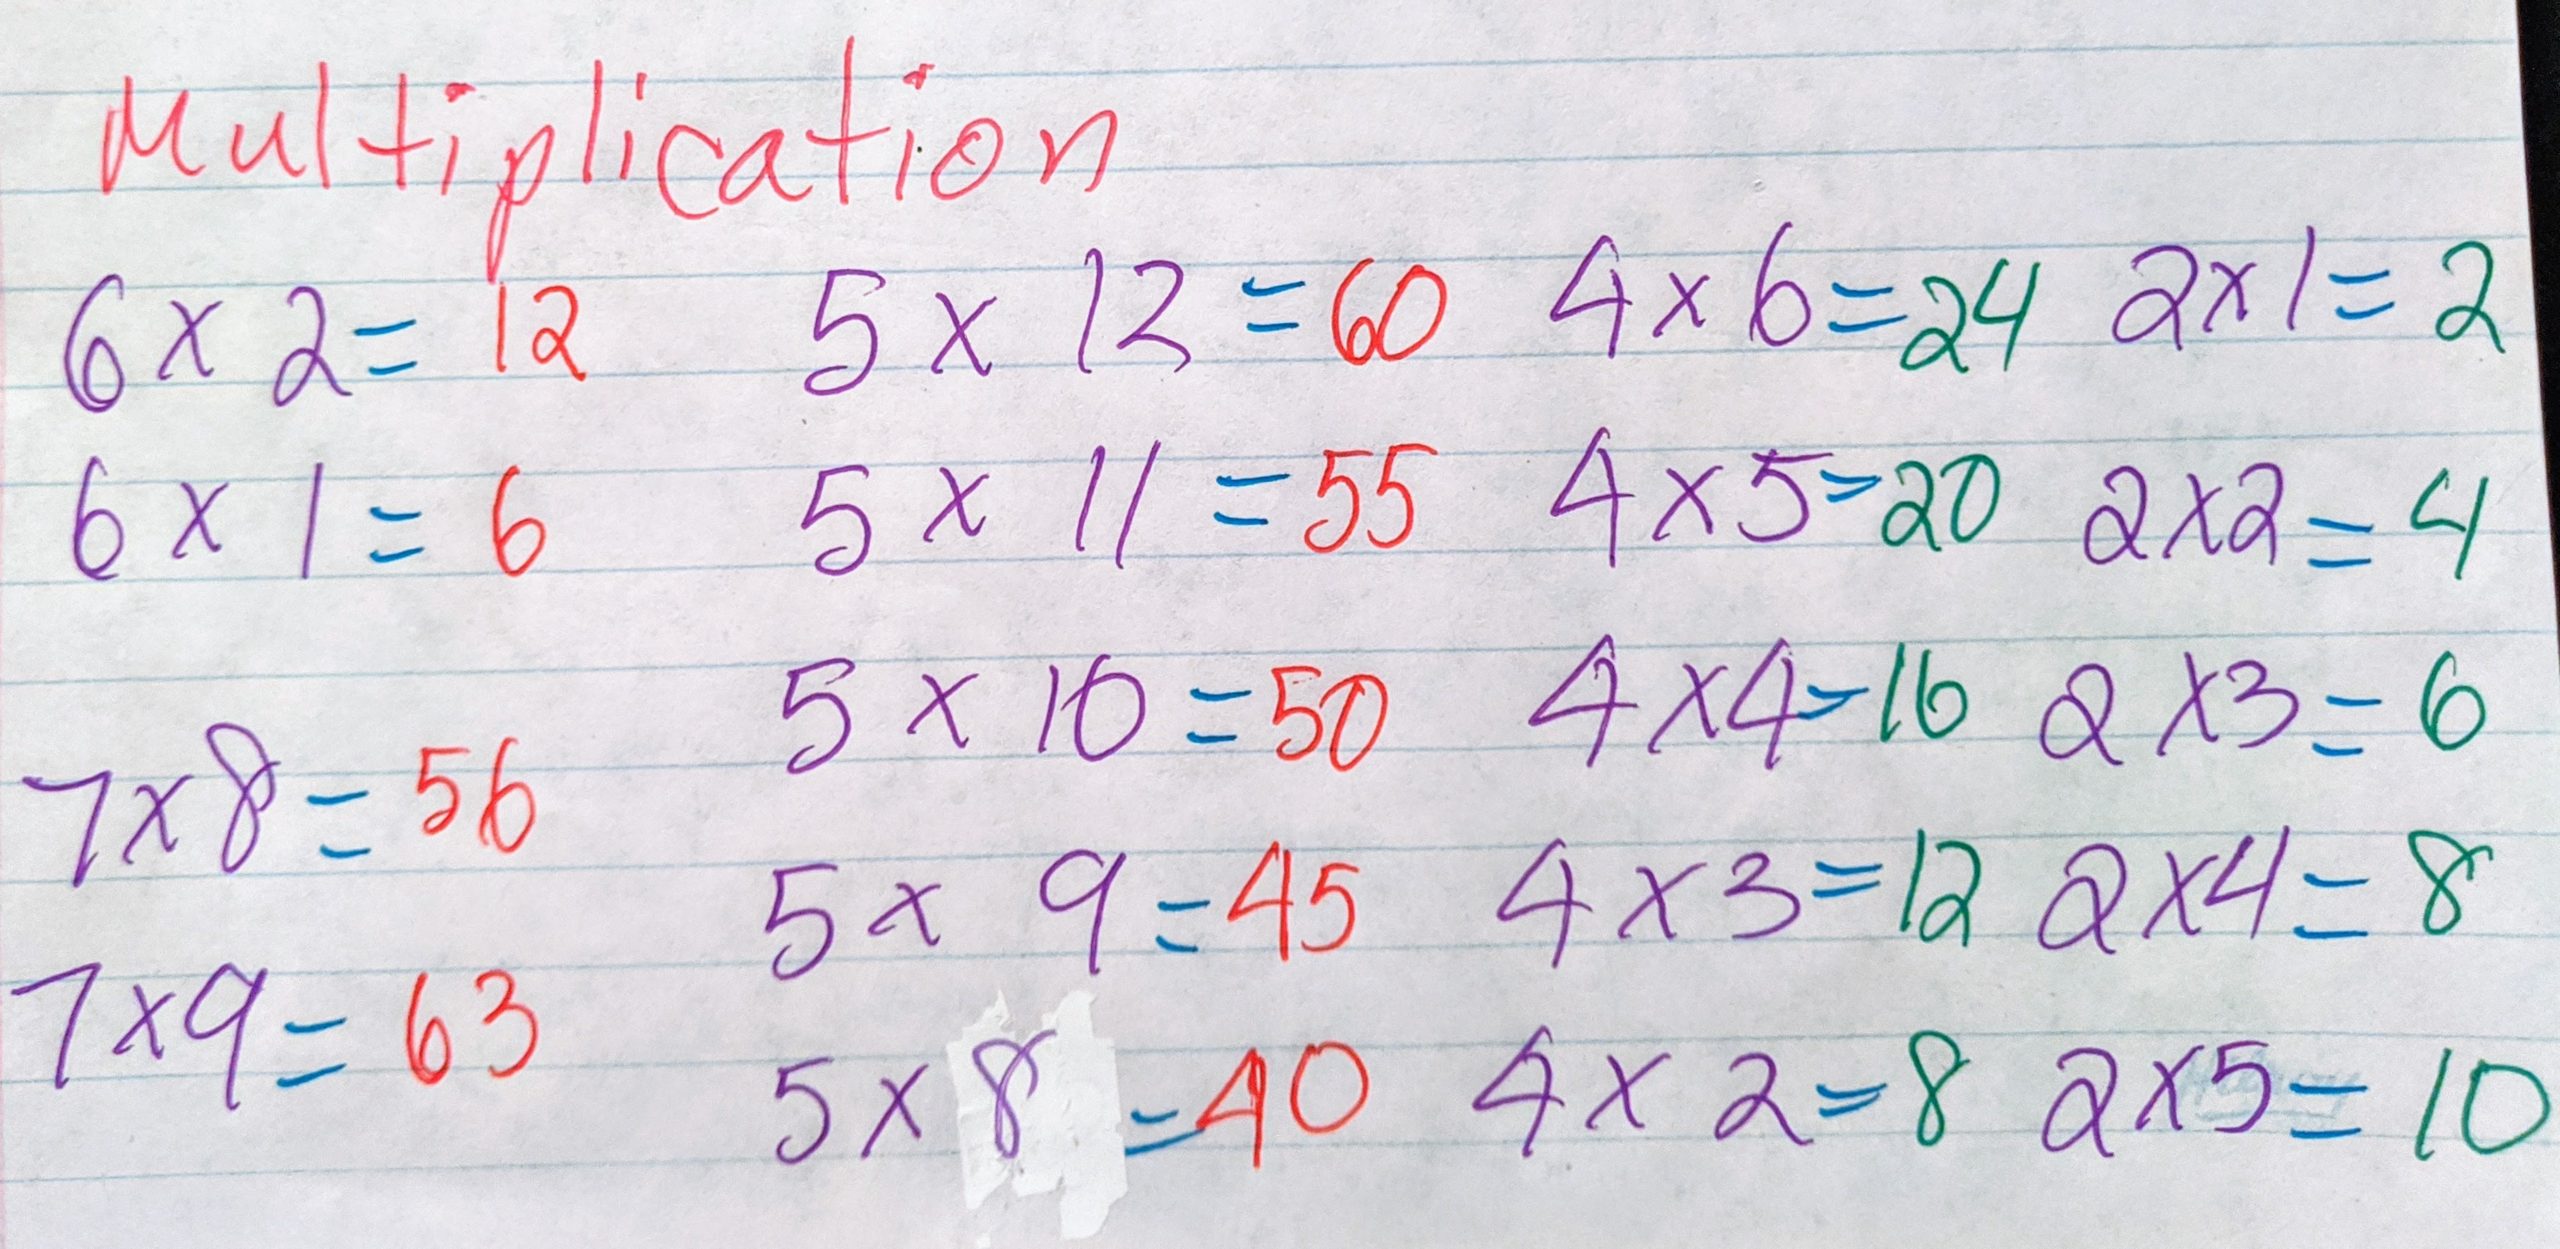 Multiplication
6 x 2 = 12
6 x 1 = 6
7 x 8 = 56
7 x 9 = 63
5 x 12 = 60
5 x 11 = 55
5 x 10 = 50
5 x 9 = 45
5 x 8 = 40
4 x 6 = 24
4 x 5 = 20
4 x 4 = 16
4 x 3 = 12
4 x 2 = 8
2 x 1 = 2
2 x 2 = 4
2 x 3 = 6
2 x 4 = 8
2 x 5 = 10